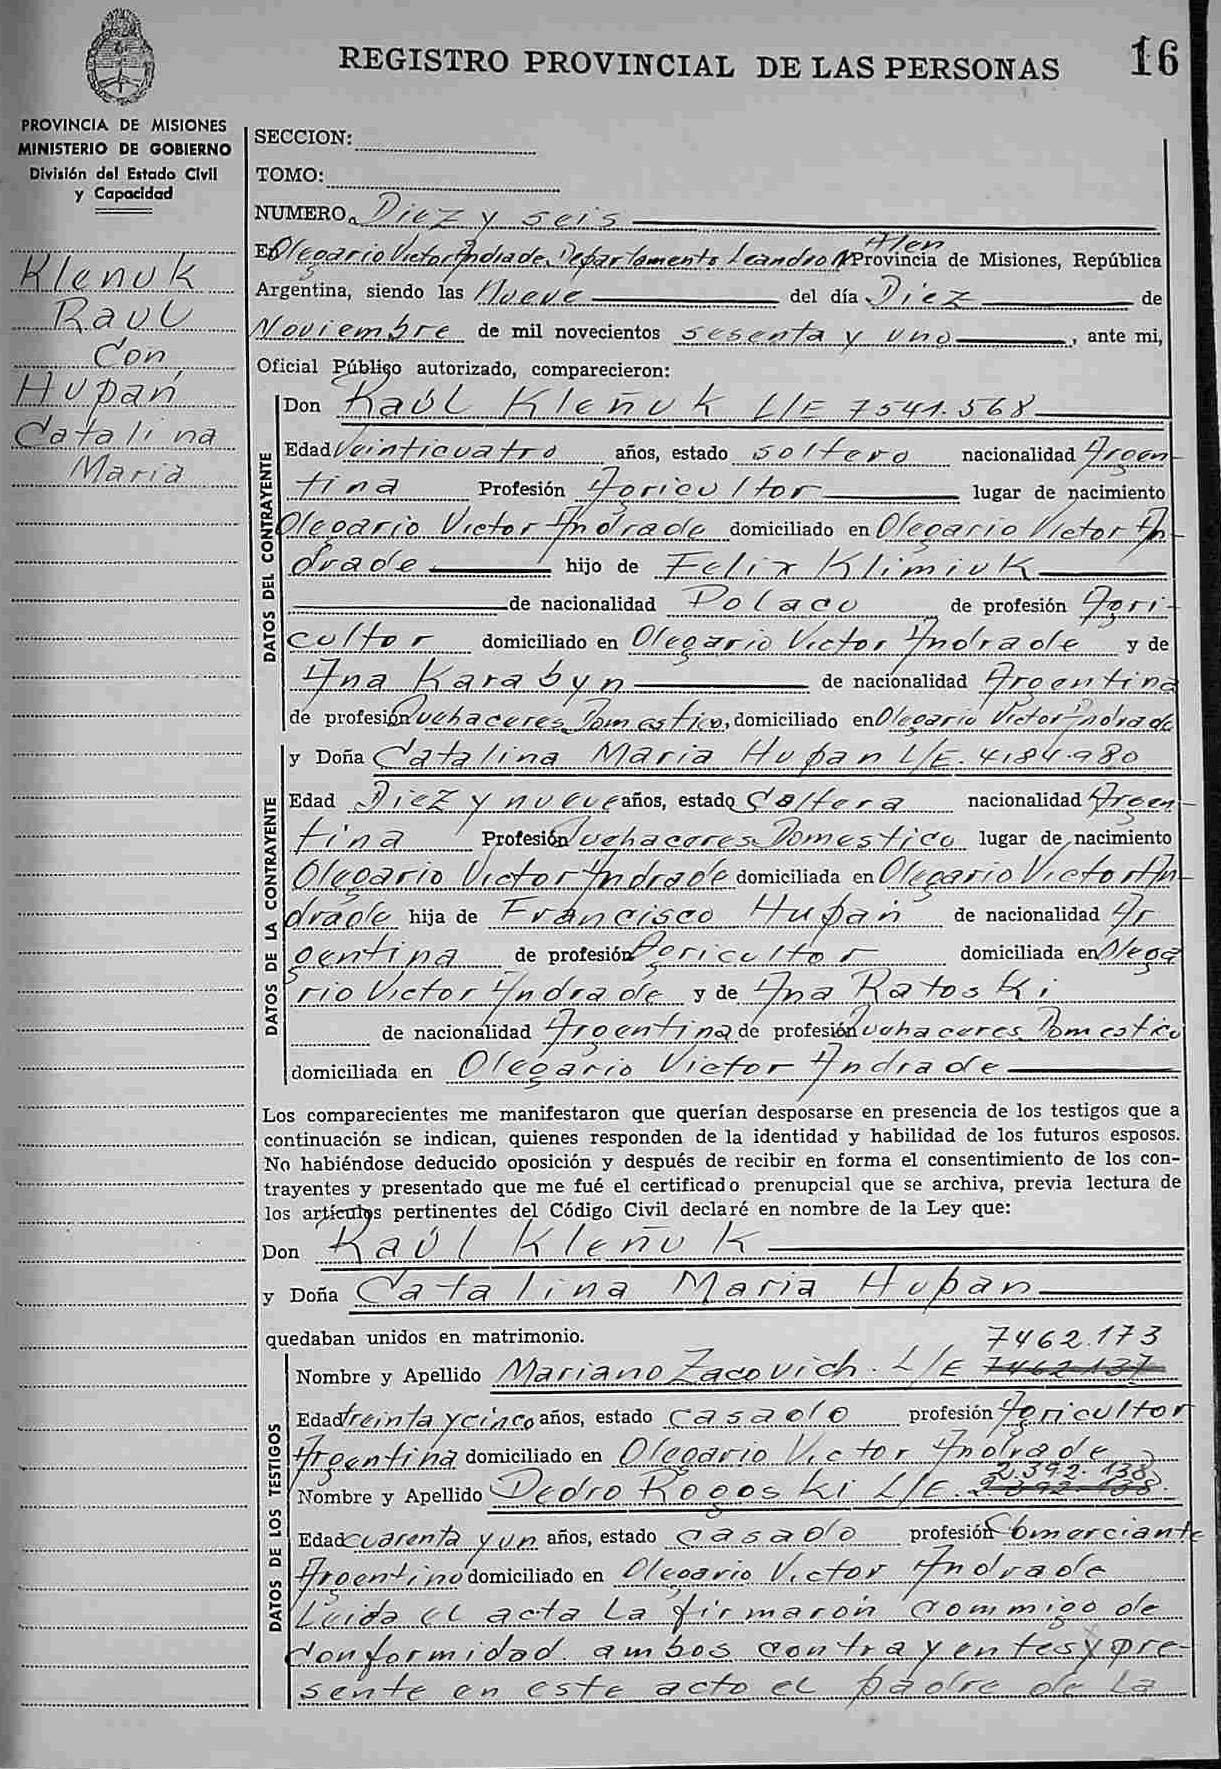 REGISTRO PROVINCIAL DE LAS PERSONAS
16
PROVINCIA DE MISIONES
MINISTERIO DE GOBIERNO
División del Estado Civil
y Capacidad
Klenuk
Raul
Con
Hupan
Catalina
Maria
SECCION:
TOMO:
NUMERO. Diez y seis
Alen
En Olegario Victor Andrade, Departamento Leandro N Provincia de Misiones, República
Argentina, siendo las Nueve del día Diez de
Noviembre de mil novecientos sesenta y uno, ante mi,
Oficial Público autorizado, comparecieron:
DATOS DEL CONTRAYENTE
Don Raúl Kleñuk L/E 7541.568
Edad Veinticuatro años, estado soltero nacionalidad Argen-
tina Profesión Agricultor lugar de nacimiento
Olegario Victor Andrade domiciliado en Olegario Victor An-
drade hijo de Felix Klimiuk
de nacionalidad Polaco de profesión Agri-
cultor domiciliado en Olegario Victor Andrade y de
Ana Karabyn de nacionalidad Argentina
de profesión Quehaceres Domestico, domiciliado en Olegario Victor Andrade
DATOS DE LA CONTRAYENTE
y Doña Catalina Maria Hupan L/E. 4.184.980
Edad Diez y nueve años, estado Soltera nacionalidad Argen-
tina Profesión Quehaceres Domestico lugar de nacimiento
Olegario Victor Andrade domiciliada en Olegario Victor An-
drade hija de Francisco Hupan de nacionalidad Ar
gentina de profesión Agricultor domiciliada en Olega
rio Victor Andrade y de Ana Ratoski
de nacionalidad Argentina de profesión Quehaceres Domestico
domiciliada en Olegario Victor Andrade
Los comparecientes me manifestaron que querían desposarse en presencia de los testigos que a
continuación se indican, quienes responden de la identidad y habilidad de los futuros esposos.
No habiéndose deducido oposición y después de recibir en forma el consentimiento de los con-
trayentes y presentado que me fué el certificado prenupcial que se archiva, previa lectura de
los artículos pertinentes del Código Civil declaré en nombre de la Ley que:
Don Raúl Kleñuk
y Doña Catalina Maria Hupan
quedaban unidos en matrimonio. 7462.173
DATOS DE LOS TESTIGOS
Nombre y Apellido Mariano Zacovich. L/E 7462137
Edad treinta y cinco años, estado casado profesión Agricultor
Argentina domiciliado en Olegario Victor Andrade
2.392.138
Nombre y Apellido Pedro Rogoski L/E.
Edad cuarenta y un años, estado casado profesión Comerciante
Argentino domiciliado en Olegario Victor Andrade
Leida el acta la firmaron commigo de
conformidad ambos contrayentes y pre-
sente en este acto el padre de la